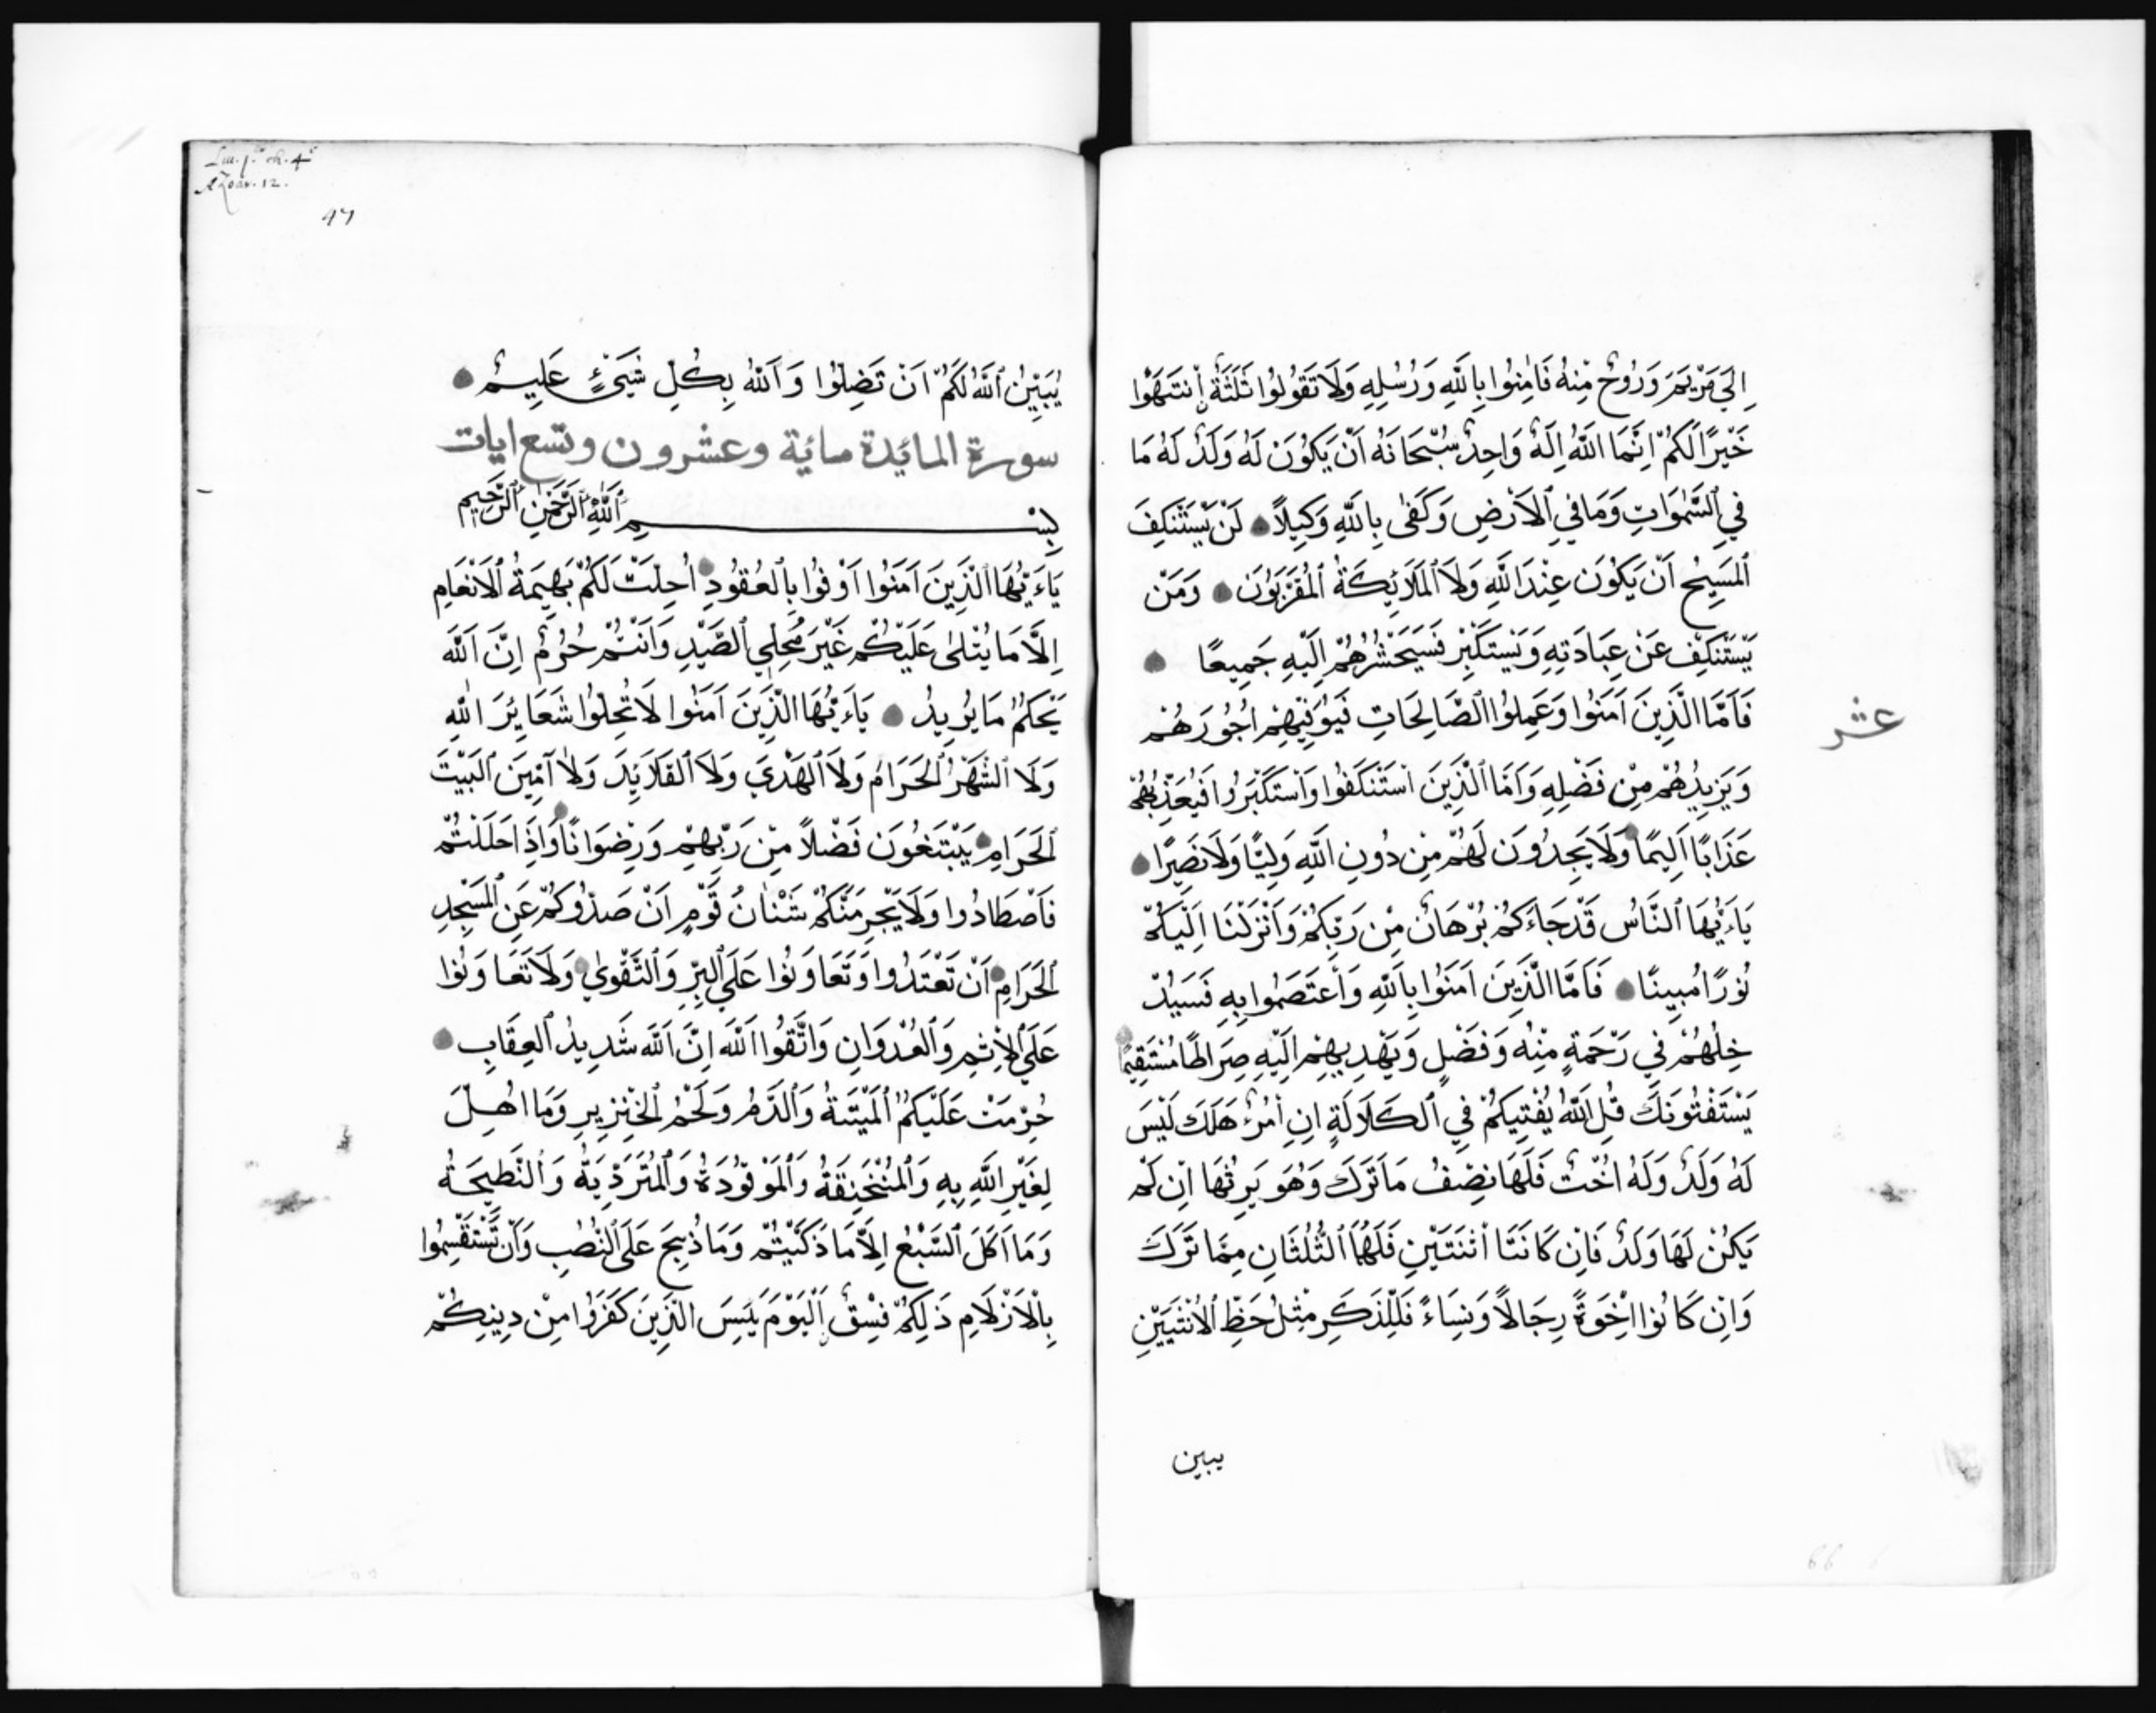 اِلَىٰ مَرْيَمَ وَرُوحٌ مِنْهُ فَاٰمِنُوا بِاللّٰهِ وَرُسُلِهِ وَلَا تَقُولُوا ثَلٰثَةٌ اِنْتَهُوا
خَيْرًا لَكُمْ اِنَّمَا اللّٰهُ اِلَهٌ وَاحِدٌ سُبْحَانَهُ اَنْ يَكُوْنَ لَهُ وَلَدٌ لَهُ مَا
فِي السَّمٰوَاتِ وَمَا فِي الْاَرْضِ وَكَفٰى بِاللّٰهِ وَكِيلًا لَنْ يَسْتَنْكِفَ
الْمَسِيْحُ اَنْ يَكُوْنَ عِنْدَ اللّٰهِ وَلَا الْمَلَائِكَةُ الْمُقَرَّبُوْنَ وَمَنْ
يَسْتَنْكِفْ عَنْ عِبَادَتِهِ وَيَسْتَكْبِرْ فَسَيَحْشُرُهُمْ اِلَيْهِ جَمِيعًا
فَاَمَّا الَّذِينَ اَمَنُوا وَعَمِلُوا الصَّالِحَاتِ فَيُوَفِّيْهِمْ اُجُوْرَهُمْ
عشر
وَيَزِيدُهُمْ مِنْ فَضْلِهِ وَاَمَّا الَّذِينَ اسْتَنْكَفُوا وَاسْتَكْبَرُوا فَيُعَذِّبُهُمْ
عَذَابًا اَلِيمًا وَلَا يَجِدُوْنَ لَهُمْ مِنْ دُونِ اللّٰهِ وَلِيًّا وَلَا نَصِيرًا
يَاءَيُّهَا النَّاسُ قَدْ جَاءَكُمْ بُرْهَانٌ مِنْ رَبِّكُمْ وَاَنْزَلْنَا اِلَيْكُمْ
نُوْرًا مُبِينًا فَاَمَّا الَّذِينَ اَمَنُوا بِاللّٰهِ وَاعْتَصَمُوا بِهِ فَسَيُدْ
خِلُهُمْ فِي رَحْمَةٍ مِنْهُ وَفَضْلٍ وَيَهْدِيهِمْ اِلَيْهِ صِرَاطًا مُسْتَقِيْمًا
يَسْتَفْتُوْنَكَ قُلِ اللّٰهُ يُفْتِيكُمْ فِي الْكَلَالَةِ اِنِ امْرُءٌ هَلَكَ لَيْسَ
لَهُ وَلَدٌ وَلَهُ اُخْتٌ فَلَهَا نِصْفُ مَا تَرَكَ وَهُوَ يَرِثُهَا اِنْ لَمْ
يَكُنْ لَهَا وَلَدٌ فَاِنْ كَانَتَا اثْنَتَيْنِ فَلَهُمَا الثُّلُثَانِ مِمَّا تَرَكَ
وَاِنْ كَانُوا اِخْوَةً رِجَالًا وَنِسَاءً فَلِلذَّكَرِ مِثْلُ حَظِّ الْاُنْثَيَيْنِ
يبين
66
47
يُبَيِّنُ اللّٰهُ لَكُمْ اَنْ تَضِلُّوا وَاللّٰهُ بِكُلِّ شَيْءٍ عَلِيمٌ
سورة المائدة مائية وعشرون وتسع ايات
بِسْمِ اللّٰهِ الرَّحْمٰنِ الرَّحِيمِ
يَاءَيُّهَا الَّذِينَ اَمَنُوا اَوْفُوا بِالْعُقُوْدِ اُحِلَّتْ لَكُمْ بَهِيمَةُ الْاَنْعَامِ
اِلَّا مَا يُتْلٰى عَلَيْكُمْ غَيْرَ مُحِلِّي الصَّيْدِ وَاَنْتُمْ حُرُمٌ اِنَّ اللّٰهَ
يَحْكُمُ مَا يُرِيدُ يَاءَيُّهَا الَّذِينَ اَمَنُوا لَا تُحِلُّوا شَعَايِرَ اللّٰهِ
وَلَا الشَّهْرَ الْحَرَامَ وَلَا الْهَدْيَ وَلَا الْقَلَايِدَ وَلَا اٰمِّينَ الْبَيْتَ
الْحَرَامِ يَبْتَغُوْنَ فَضْلًا مِنْ رَبِّهِمْ وَرِضْوَانًا وَاِذَا حَلَلْتُمْ
فَاصْطَادُوا وَلَا يَجْرِمَنَّكُمْ شَنْاٰنُ قَوْمٍ اَنْ صَدُّوْكُمْ عَنِ الْمَسْجِدِ
الْحَرَامِ اَنْ تَعْتَدُوا وَتَعَاوَنُوا عَلَى الْبِرِّ وَالتَّقْوٰي وَلَا تَعَاوَنُوْا
عَلَى الْاِثْمِ وَالْعُدْوَانِ وَاتَّقُوا اللّٰهَ اِنَّ اللّٰهَ شَدِيدُ الْعِقَابِ
حُرِّمَتْ عَلَيْكُمُ الْمَيْتَةُ وَالدَّمُ وَلَحْمُ الْخِنْزِيرِ وَمَا اُهِلَّ
لِغَيْرِ اللّٰهِ بِهِ وَالْمُنْخَنِقَةُ وَالْمَوْقُوْدَةُ وَالْمُتَرَدِّيَةُ وَالنَّطِيحَةُ
وَمَا اَكَلَ السَّبُعُ اِلَّا مَا ذَكَّيْتُمْ وَمَا ذُبِحَ عَلَى النُّصُبِ وَاَنْ تَسْتَقْسِمُوا
بِالْاَزْلَامِ ذَلِكُمْ فِسْقٌ اَلْيَوْمَ يَئِسَ الَّذِينَ كَفَرُوا مِنْ دِينِكُمْ